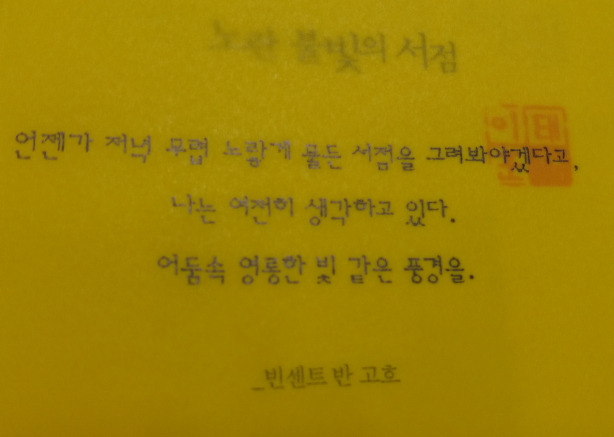 노란 불빛의 서점
언젠가 저녁 무렵 노랗게 물든 서점을 그려봐야겠다고,
나는 여전히 생각하고 있다.
어둠속 영롱한 빛 같은 풍경을.
_빈센트 반 고흐